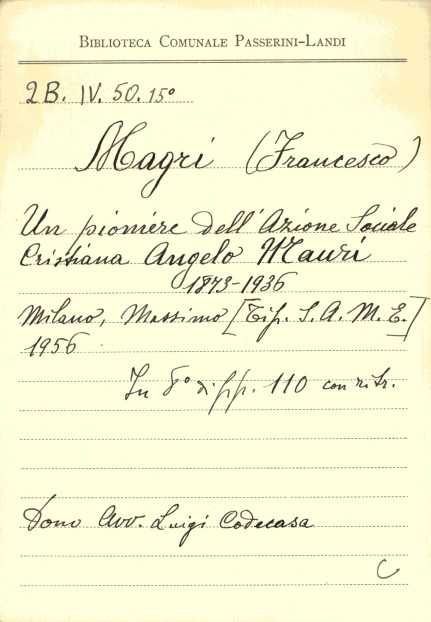 BIBLIOTECA COMUNALE PASSERINI-LANDI
2B. IV. 50. 15°
Magri (Francesco)
Un pioniere dell'Azione Sociale
Cristiana Angelo Mauri
1873-1936
Milano, Massimo [Tip. S. A. M. E.]
1956
In 8° di pp. 110 con ritr.
Dono Avv. Luigi Codecasa
C